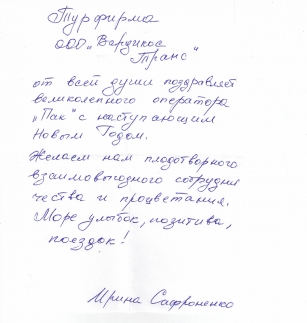 Турфирма
ООО „Вардикос
Транс“
от всей души поздравляет
великолепного оператора
„Пак“ с наступающим
Новым Годом.
Желаем нам плодотворного
взаимовыгодного сотрудни
чества и процветания.
Море улыбок, позитива,
поездок!
Ирина Сафроненко